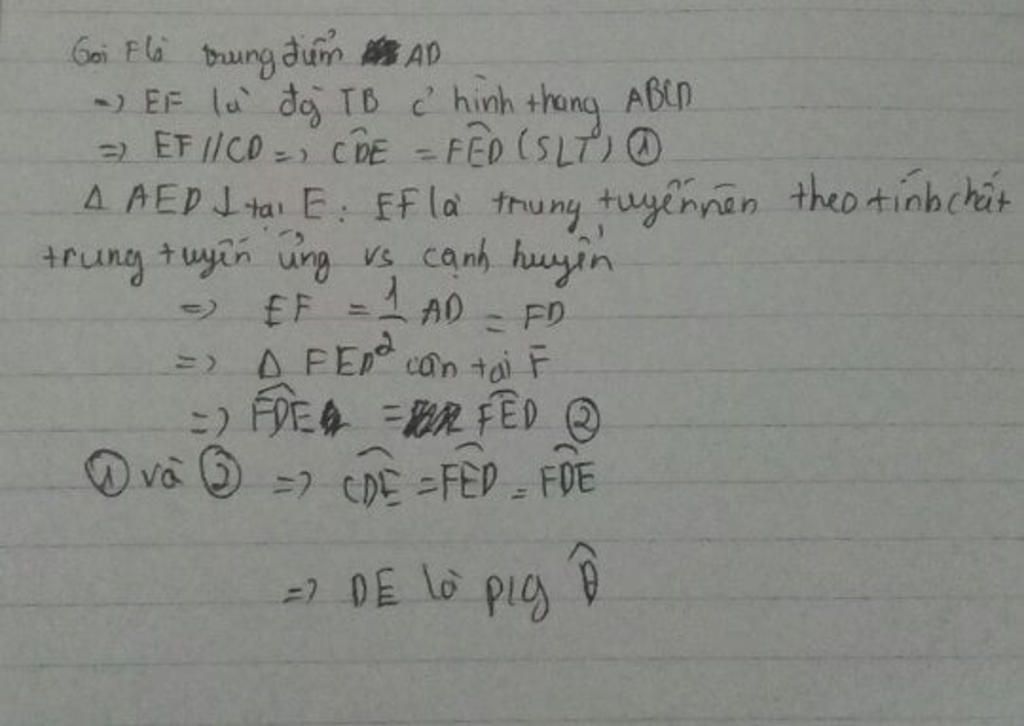 Gọi F là trung điểm AD
=> EF là đg TB c' hình thang ABCD
=> EF//CD => CDE = FED (SLT) ①
Δ AED ⊥ tại E: EF là trung tuyến nên theo tính chất
trung tuyến ứng vs cạnh huyền
=> EF = 1/2 AD = FD
=> Δ FED cân tại F
=> FDE = FED ②
① và ② => CDE = FED = FDE
=> DE là p/g D